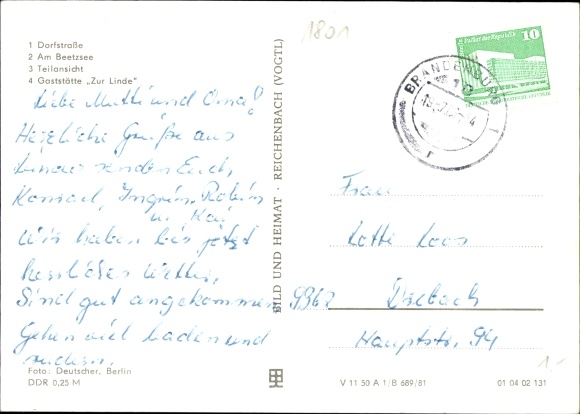 1801
1 Dorfstraße
2 Am Beetzsee
3 Teilansicht
4 Gaststätte „Zur Linde"
Liebe Mutti und Oma!
Herzliche Grüße aus
senden Euch,
Konrad, Ingrun, Robin
u. Kai
Wir haben bis jetzt
herrliches Wetter.
Sind gut angekommen
Gehen viel baden und
rudern.
Foto: Deutscher, Berlin
DDR 0,25 M
BILD UND HEIMAT · REICHENBACH (VOGTL)
Palast der Republik 10
BRANDENBURG 1
Frau
Lotte Loos
9362 Drebach
Hauptstr. 94
1.-
V 11 50 A 1/B 689/81
01 04 02 131